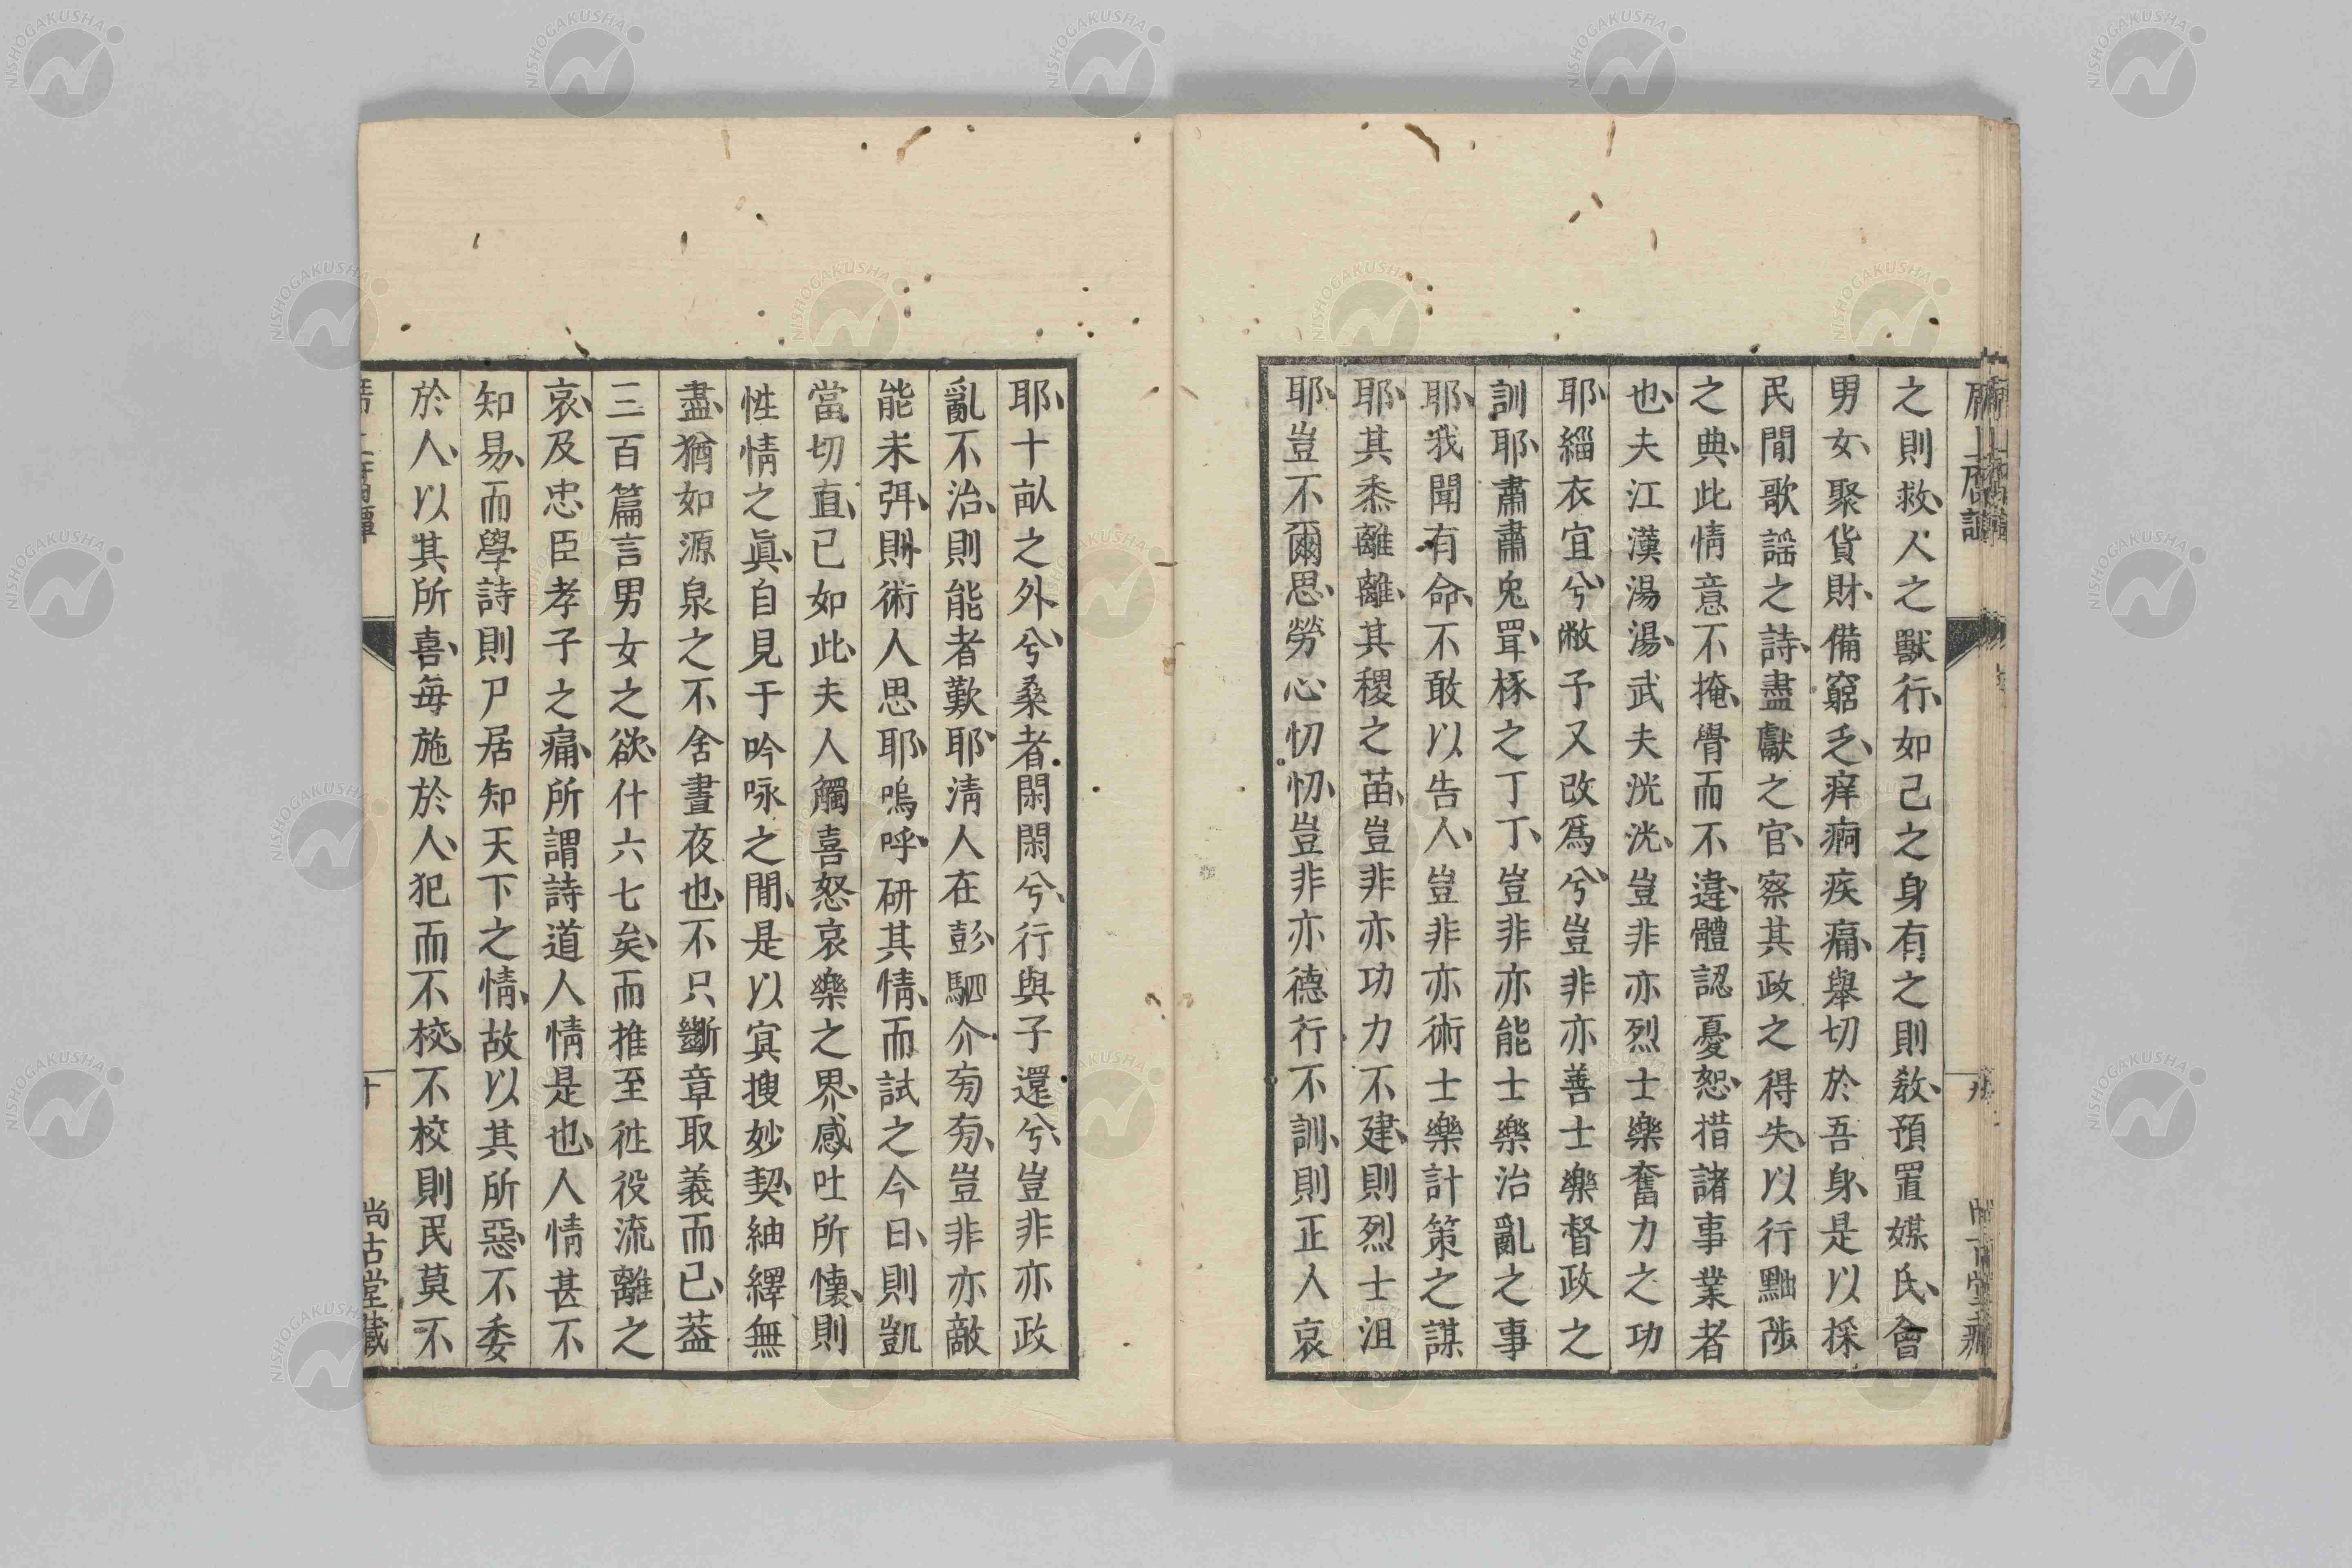 之則救、人之獸行、如己之身有之則教、預置媒氏、會
男女、聚貨財、備窮乏、痒痾疾痛、舉切於吾身、是以採
民間歌謡之詩、盡獻之官、察其政之得失、以行黜陟
之典、此情意不掩、膂而不違、體認憂恕、措諸事業者
也、夫江漢湯湯、武夫洸洸、豈非亦烈士樂奮力之功
耶、緇衣宜兮、敝予又改爲兮、豈非亦善士樂督政之
訓耶、肅肅兎罝、椓之丁丁、豈非亦能士樂治亂之事
耶、我聞有命、不敢以告人、豈非亦術士樂計策之謀
耶、其黍離離、其稷之苗、豈非亦功力不建、則烈士沮
耶、豈不爾思、勞心忉忉、豈非亦德行不訓、則正人哀
耶、十畝之外兮、桑者閑閑兮、行與子還兮、豈非亦政
亂不治、則能者歎耶、淸人在彭、駟介旁旁、豈非亦敵
能未弭、則術人思耶、嗚呼、研其情、而試之今日、則凱
當切直、已如此、夫人觸喜怒哀樂之界、感吐所懷、則
性情之眞、自見于吟咏之間、是以冥搜妙契、紬繹無
盡、猶如源泉之不舍晝夜也、不只斷章取義而已、葢
三百篇言男女之欲、什六七矣、而推至徃役流離之
哀、及忠臣孝子之痛、所謂詩道人情是也、人情甚不
知易、而學詩則尸居知天下之情、故以其所惡、不委
於人、以其所喜、每施於人、犯而不校、不校則民莫不
十
尚古堂藏
NISHOGAKUSHA